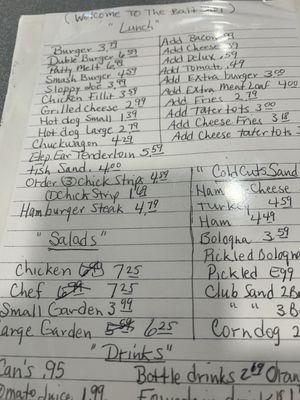 (Welcome To The Bait
"Lunch"
Burger 3.79
Duble Burger 6.59
Patty Melt 6.98
Smash Burger 4.59
Sloppy Joe 3.99
Chicken Fillit 3.59
Grilled Cheese 2.99
Hot dog Small 1.39
Hot dog Large 2.79
Chuckwagon 4.29
Elep. Ear Tenderloin 5.59
Fish Sand. 4.00
Order (3) Chick Strip 4.59
(1) Chick Strip 1.69
Hamburger Steak 4.79
Add Bacon
Add Cheese
Add Delux .59
Add Tomato .49
Add Extra burger 3.00
Add Extra Meat Loaf 4.00
Add Fries 2.19
Add Tatertots 3.00
Add Cheese Fries 3.18
Add Cheese tatertots 3
"Cold Cuts Sand
Ham Cheese
Turkey 4.59
Ham 4.49
Bologna 3.59
Pickled Bologna
Pickled Egg
Club Sand 2 B
" " 3 B
Corndog 2
"Salads"
Chicken 7.25
Chef 7.25
Small Garden 3.99
Large Garden 6.25
"Drinks"
Can's .95
Tomato Juice 1.99
Bottle drinks 2.69 Oran